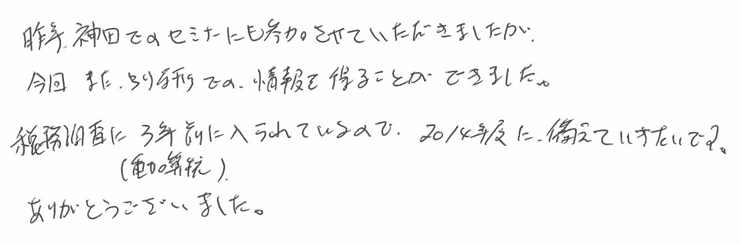 昨年、神田でのセミナーにも参加させていただきましたが、
今回 また、より新しい 情報を得ることが できました。
税務調査に 3年前に入られているので、2014年度に、備えていきたいです。
ありがとうございました。